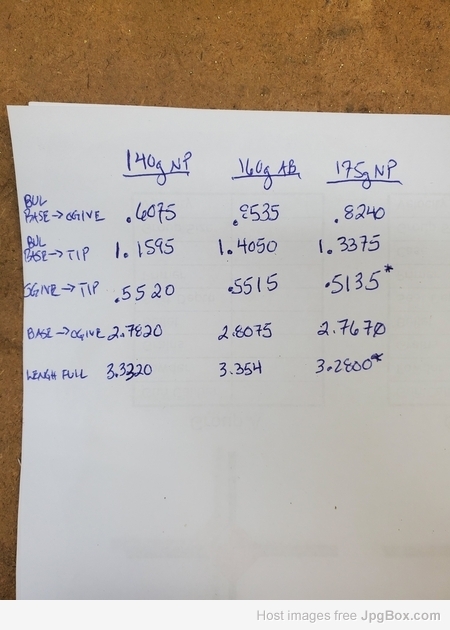 140g NP 160g AB 175g NP
BUL
BASE→OGIVE .6075 .8535 .8240
BUL
BASE→TIP 1.1595 1.4050 1.3375
OGIVE→TIP .5520 .5515 .5135*
BASE→OGIVE 2.7820 2.8075 2.7670
LENGH FULL 3.3320 3.354 3.2800*
Host images free JpgBox.com